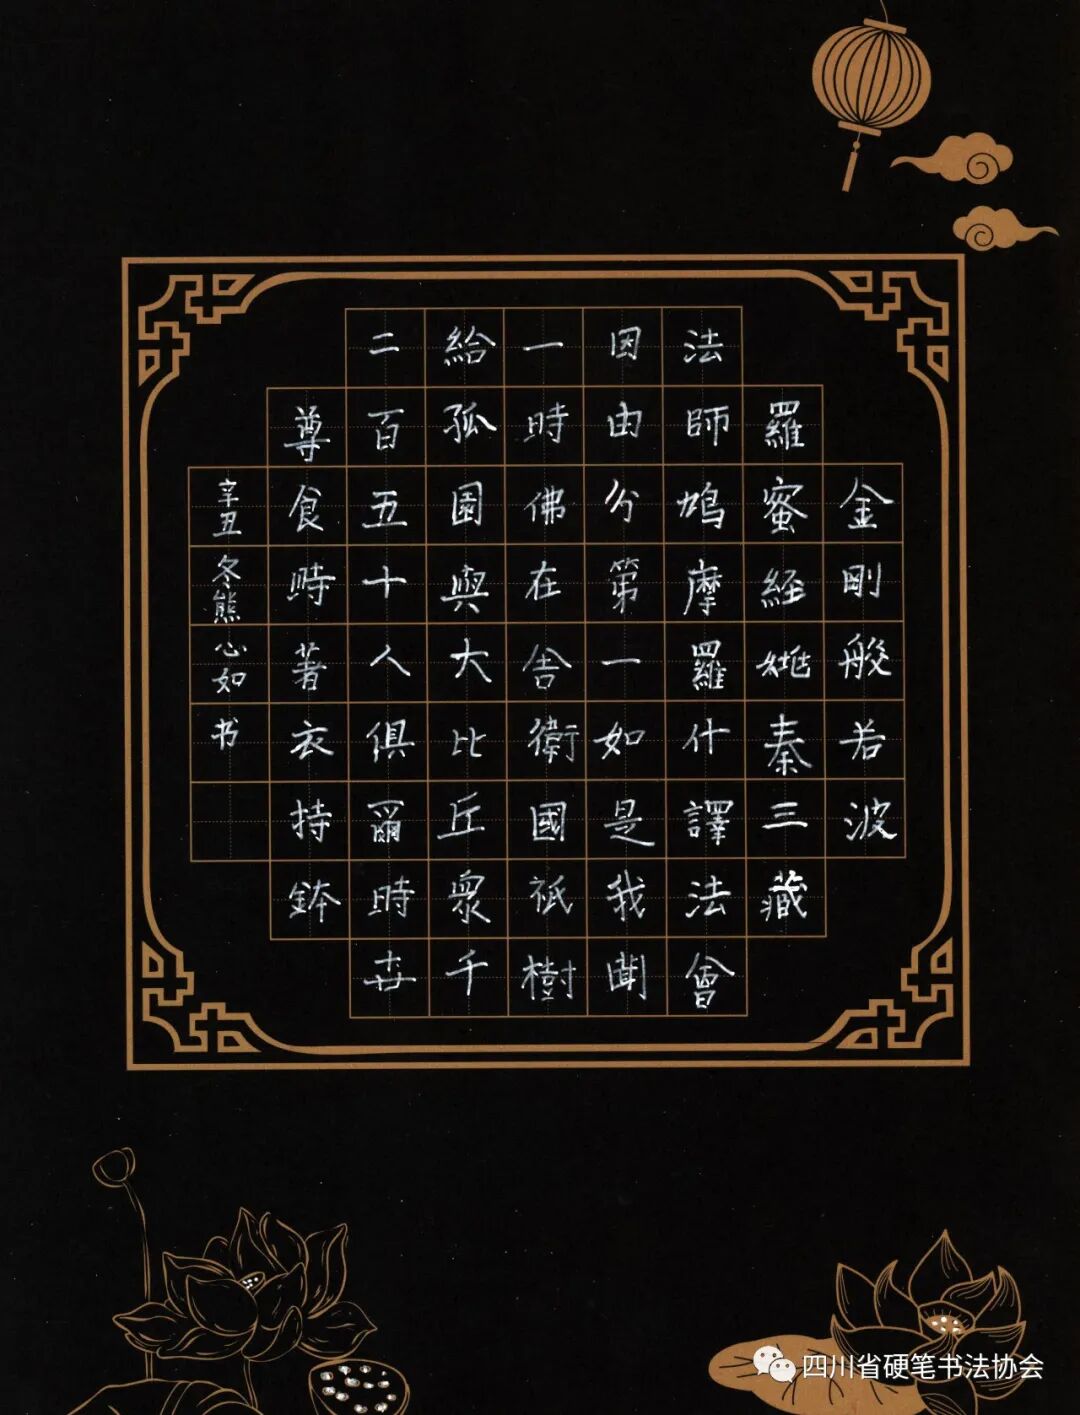 金剛般若波
羅蜜經姚秦三藏
法師鳩摩羅什譯法會
因由分第一如是我聞
一時佛在舎衛國祇樹
給孤園與大比丘衆千
二百五十人俱爾時世
尊食時著衣持鉢
辛丑冬熊心如书
四川省硬笔书法协会